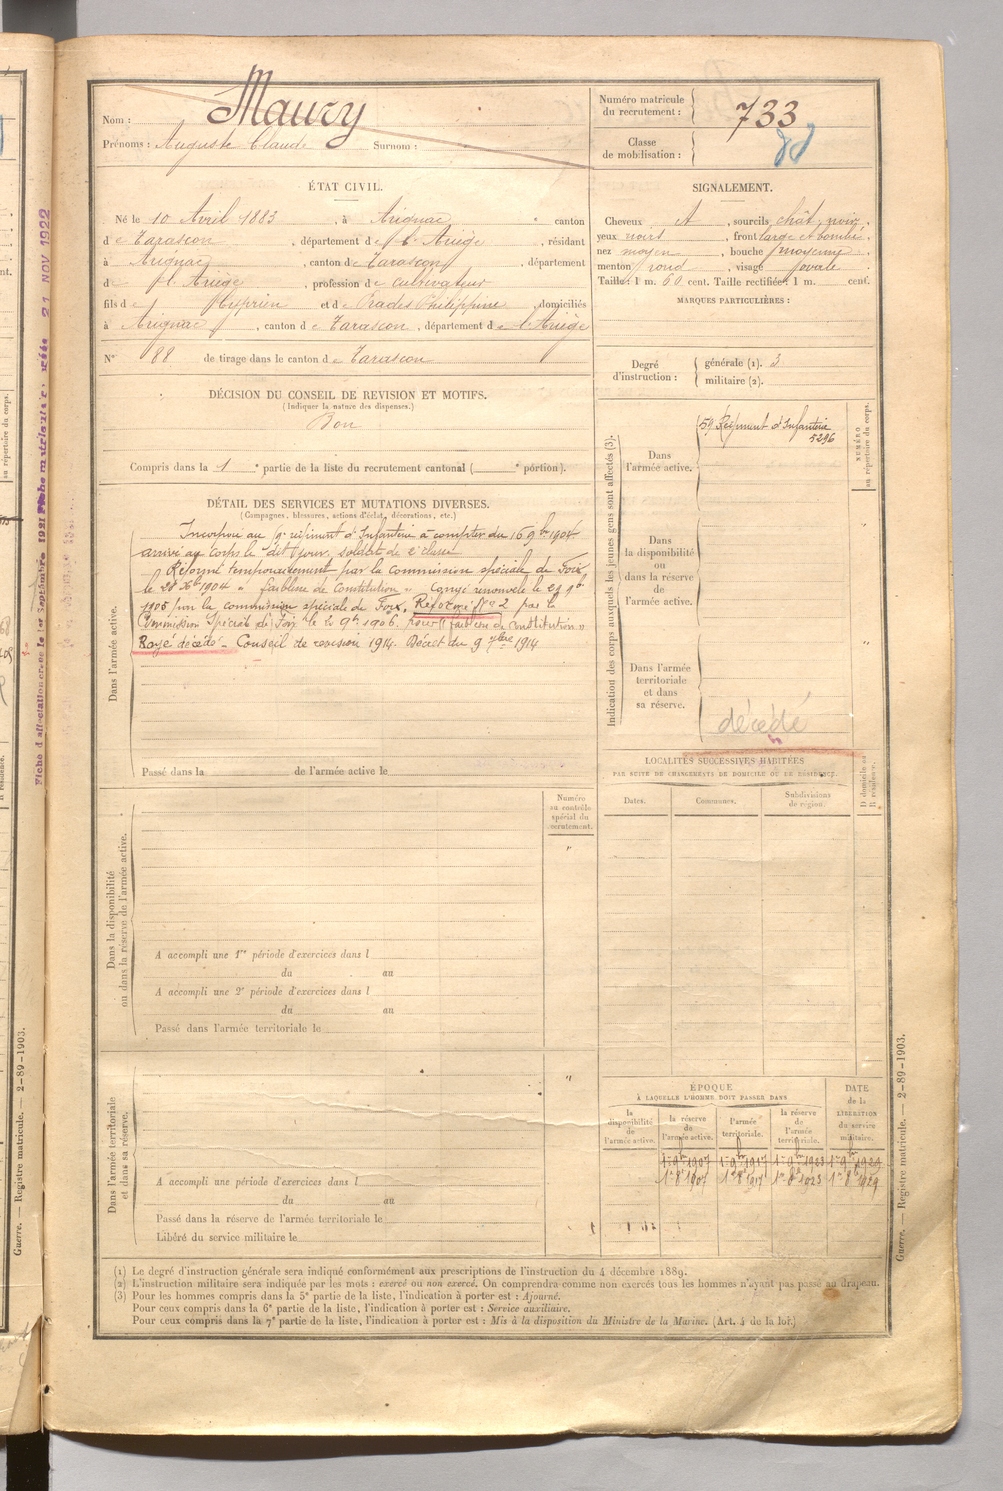 Nom : Maury
Prénoms : Auguste Claude Surnom :
Numéro matricule du recrutement : 733
Classe de mobilisation :
ÉTAT CIVIL.
Né le 10 Avril 1883, à Arignac canton
de Tarascon, département de l'Ariège, résidant
à Arignac, canton de Tarascon, département
de l'Ariège, profession de cultivateur
fils de Cyprien et de Prades Philippine, domiciliés
à Arignac, canton de Tarascon, département de l'Ariège
N° 88 de tirage dans le canton de Tarascon
SIGNALEMENT.
Cheveux, sourcils chât. noir.
yeux noirs, front large et bombé.
nez moyen, bouche moyenne
menton rond, visage ovale
Taille : 1 m. 60 cent. Taille rectifiée : 1 m. cent.
MARQUES PARTICULIÈRES :
Degré d'instruction : générale (1). 3
militaire (2).
DÉCISION DU CONSEIL DE REVISION ET MOTIFS.
(Indiquer la nature des dispenses.)
Bon
Compris dans la 1e partie de la liste du recrutement cantonal (e portion).
DÉTAIL DES SERVICES ET MUTATIONS DIVERSES.
(Campagnes, blessures, actions d'éclat, décorations, etc.)
Dans l'armée active.
Incorporé au régiment d'Infanterie à compter du 16 9bre 1904
arrivé au corps le dit jour, soldat de 2e classe
Réformé temporairement par la commission spéciale de Foix
le 1904 "faiblesse de Constitution" Congé renouvelé le 9b
1905 par la commission spéciale de Foix. Réformé N° 2 par la
Commission Spéciale de Foix le 9b 1906 pour "faiblesse de constitution"
Rayé décédé. Conseil de revision 1914. Décret du 9 7bre 1914
Passé dans la de l'armée active le
Indication des corps auxquels les jeunes gens sont affectés (3).
NUMÉRO au répertoire du corps.
Dans l'armée active.
59 Régiment d'Infanterie
5296
Dans la disponibilité ou dans la réserve de l'armée active.
Dans l'armée territoriale et dans sa réserve.
décédé
LOCALITÉS SUCCESSIVES HABITÉES
PAR SUITE DE CHANGEMENTS DE DOMICILE OU DE RÉSIDENCE.
Dates. Communes. Subdivisions de région. D domicile ou R résidence.
Numéro au contrôle spécial du recrutement.
Dans la disponibilité ou dans la réserve de l'armée active.
A accompli une 1re période d'exercices dans l
du au
A accompli une 2e période d'exercices dans l
du au
Passé dans l'armée territoriale le
Dans l'armée territoriale et dans sa réserve.
A accompli une période d'exercices dans l
du au
Passé dans la réserve de l'armée territoriale le
Libéré du service militaire le
ÉPOQUE
À LAQUELLE L'HOMME DOIT PASSER DANS
la disponibilité de l'armée active. la réserve de l'armée active. l'armée territoriale. la réserve de l'armée territoriale. DATE de la LIBÉRATION du service militaire.
1er 9b 1907 1er 9b 1917 1er 9b 1923 1er 9b 1929
1er 8b 1907 1er 8b 1917 1er 8b 1923 1er 8b 1929
(1) Le degré d'instruction générale sera indiqué conformément aux prescriptions de l'instruction du 4 décembre 1889.
(2) L'instruction militaire sera indiquée par les mots : exercé ou non exercé. On comprendra comme non exercés tous les hommes n'ayant pas passé au drapeau.
(3) Pour les hommes compris dans la 5e partie de la liste, l'indication à porter est : Ajourné.
Pour ceux compris dans la 6e partie de la liste, l'indication à porter est : Service auxiliaire.
Pour ceux compris dans la 7e partie de la liste, l'indication à porter est : Mis à la disposition du Ministre de la Marine. (Art. 4 de la loi.)
Guerre. — Registre matricule. — 2-89-1903.
Guerre. — Registre matricule. — 2-89-1903.
21 NOV 1922